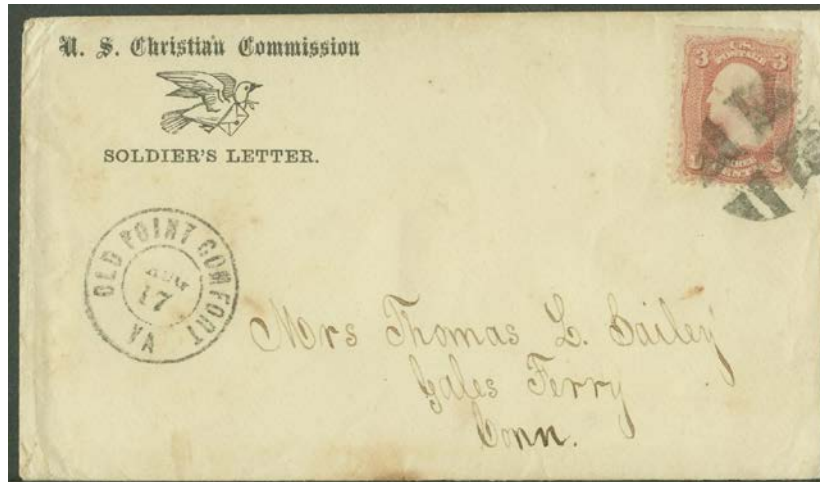 U. S. Christian Commission
SOLDIER'S LETTER.
U.S. POSTAGE
3 3
THREE CENTS
OLD POINT COMFORT
AUG
17
VA
Mrs Thomas L. Bailey
Gales Ferry
Conn.